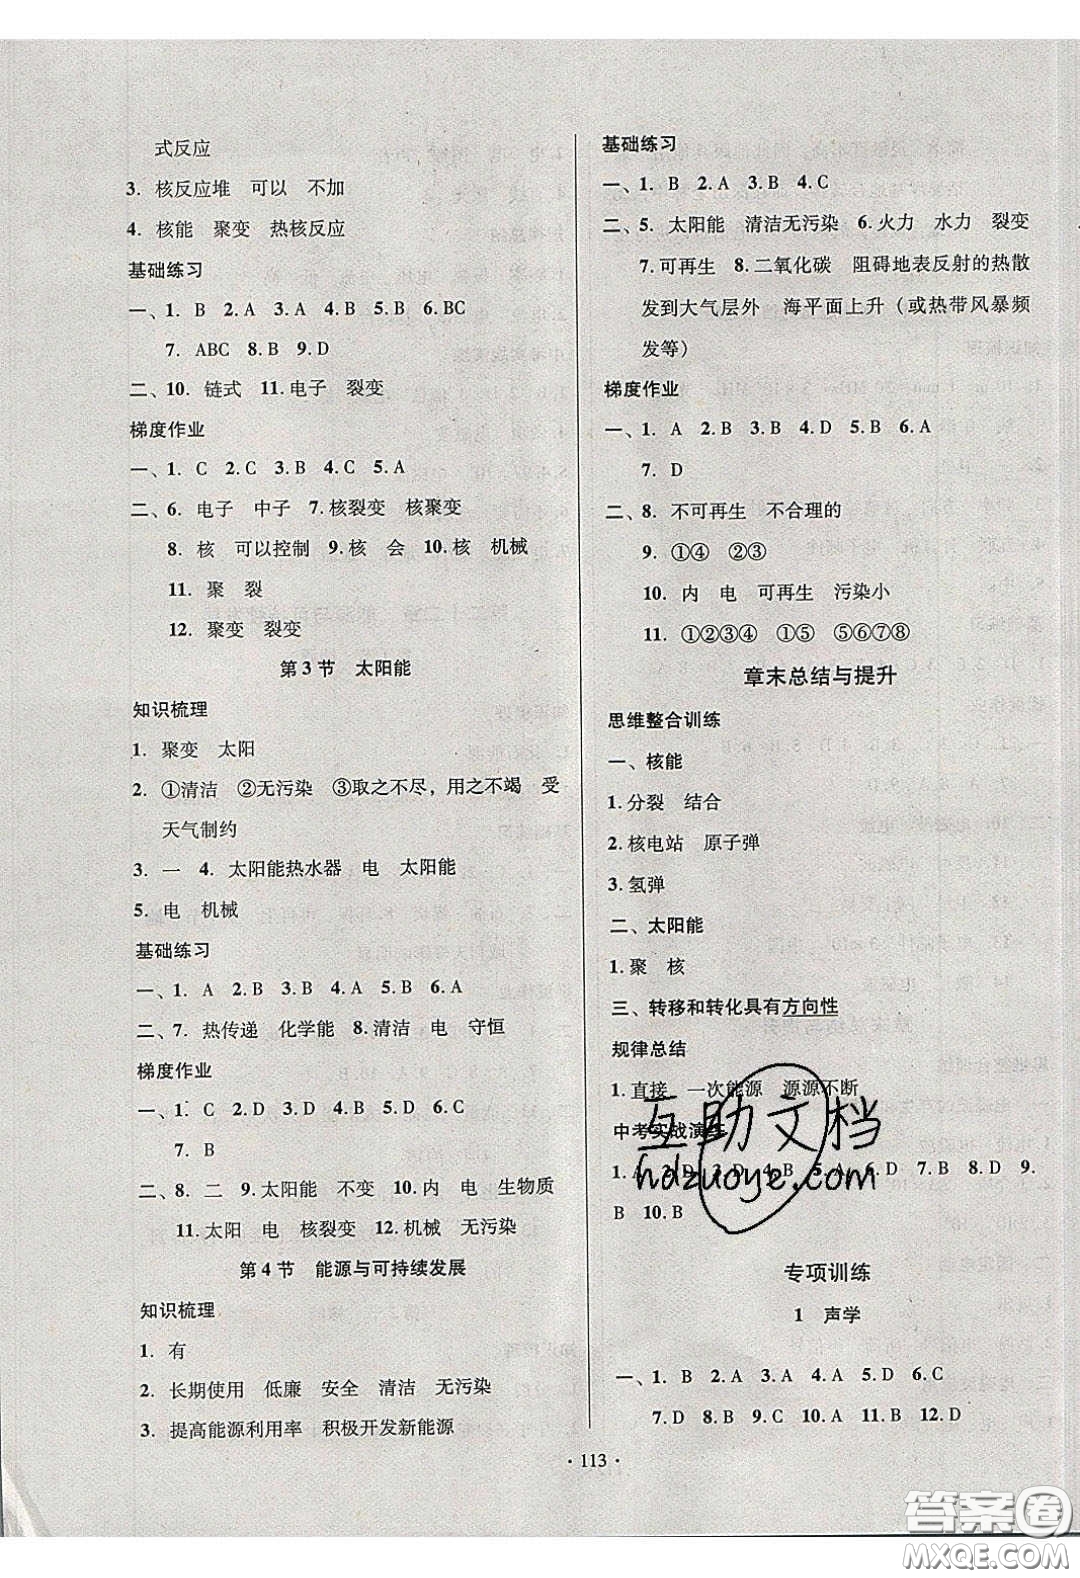 式反应
3. 核反应堆 可以 不加
4. 核能 聚变 热核反应
基础练习
一、1. B 2. A 3. A 4. A 5. B 6. BC
7. ABC 8. B 9. D
二、10. 链式 11. 电子 裂变
梯度作业
一、1. C 2. C 3. B 4. C 5. A
二、6. 电子 中子 7. 核裂变 核聚变
8. 核 可以控制 9. 核 会 10. 核 机械
11. 聚 裂
12. 聚变 裂变
第3节 太阳能
知识梳理
1. 聚变 太阳
2. ①清洁 ②无污染 ③取之不尽，用之不竭 受
天气制约
3. 一 4. 太阳能热水器 电 太阳能
5. 电 机械
基础练习
一、1. A 2. B 3. D 4. A 5. B 6. A
二、7. 热传递 化学能 8. 清洁 电 守恒
梯度作业
一、1. C 2. D 3. D 4. B 5. D 6. D
7. B
二、8. 二 9. 太阳能 不变 10. 内 电 生物质
11. 太阳 电 核裂变 12. 机械 无污染
第4节 能源与可持续发展
知识梳理
1. 有
2. 长期使用 低廉 安全 清洁 无污染
3. 提高能源利用率 积极开发新能源
基础练习
一、1. B 2. A 3. B 4. C
二、5. 太阳能 清洁无污染 6. 火力 水力 裂变
7. 可再生 8. 二氧化碳 阻碍地表反射的热散
发到大气层外 海平面上升（或热带风暴频
发等）
梯度作业
一、1. A 2. B 3. B 4. D 5. B 6. A
7. D
二、8. 不可再生 不合理的
9. ①④ ②③
10. 内 电 可再生 污染小
11. ①②③④ ①⑤ ⑤⑥⑦⑧
章末总结与提升
思维整合训练
一、核能
1. 分裂 结合
2. 核电站 原子弹
3. 氢弹
二、太阳能
1. 聚 核
三、转移和转化具有方向性
规律总结
1. 直接 一次能源 源源不断
中考实战演练
1. A 2. D 3. D 4. B 5. A 6. D 7. B 8. D 9.
B 10. B
互助文档
hdzuoye.com
专项训练
1 声学
一、1. B 2. A 3. A 4. A 5. D 6. C
7. D 8. B 9. C 10. A 11. B 12. D
· 113 ·
答案圈
MXQE.COM